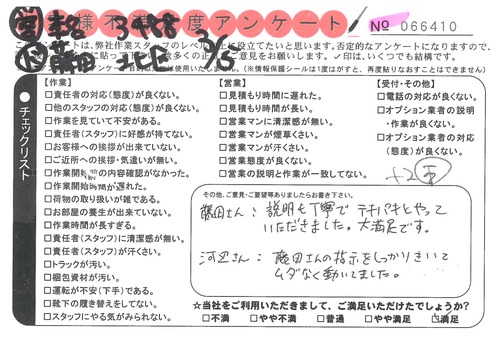 様不 度アンケート
№ 066410
は、弊社作業スタッフのレベル 上に役立てたいと思います。否定的なアンケートになりますので、
ご意見をお願いします。✓印は、いくつでも結構です。
使用いたしません。(※情報保護シールは1度はがすと、再度貼りなおすことはできません)
●チェックリスト
【作業】
□責任者の対応(態度)が良くない。
□他のスタッフの対応(態度)が良くない。
□作業を見ていて不安がある。
□責任者(スタッフ)に好感が持てない。
□お客様への挨拶が出来ていない。
□ご近所への挨拶・気遣いが無い。
□作業開始 の内容確認がなかった。
□作業開始時間が遅れた。
□荷物の取り扱いが雑である。
□お部屋の養生が出来ていない。
□作業時間が長すぎる。
□責任者(スタッフ)に清潔感が無い。
□責任者(スタッフ)が汗くさい。
□トラックが汚い。
□梱包資材が汚い。
□運転が不安(下手)である。
□靴下の履き替えをしてない。
□スタッフにやる気がみられない。
【営業】
□見積もり時間に遅れた。
□見積もり時間が長い。
□営業マンに清潔感が無い。
□営業マンが煙草くさい。
□営業マンが汗くさい。
□営業態度が良くない。
□営業の説明と作業が一致してない。
【受付・その他】
□電話の対応が良くない。
□オプション業者の説明
・作業が良くない。
□オプション業者の対応
(態度)が良くない。
その他、ご意見・ご要望等ありましたらお書き下さい。
藤田さん：説明も丁寧で テキパキとやって
いただきました。大満足です。
河辺さん：藤田さんの指示をしっかりきいて
ムダなく動いてました。
☆当社をご利用いただきまして、ご満足いただけたでしょうか?
□不満 □やや不満 □普通 □やや満足 ☑満足